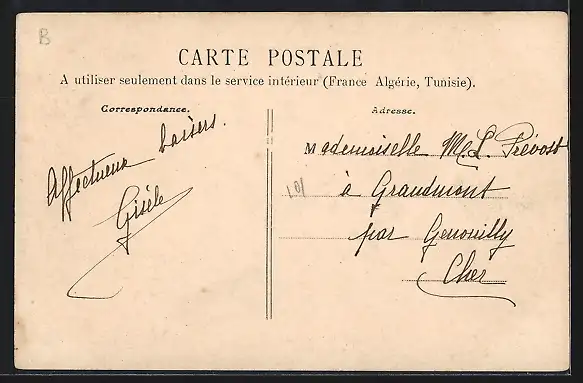 B
CARTE POSTALE
A utiliser seulement dans le service intérieur (France Algérie, Tunisie).
Correspondance.
Adresse.
Affectueux baisers.
Gisèle
Mademoiselle M. L. Prévost
101
à Grandmont
par Genouilly
Cher